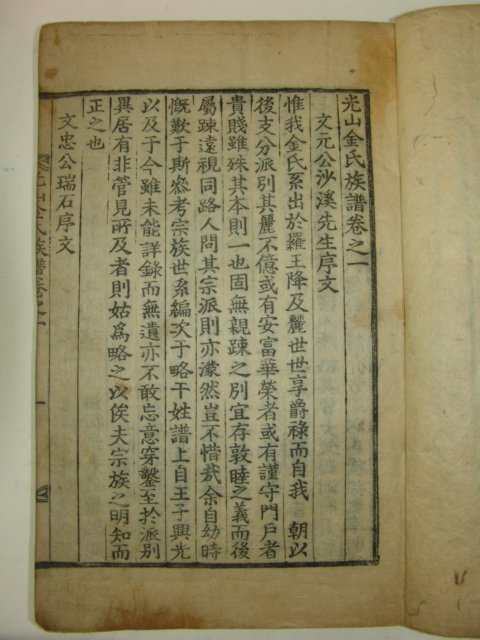 光山金氏族譜卷之一
文元公沙溪先生序文
惟我金氏系出於羅王降及麗世世享爵祿而自我 朝以
後支分派別其麗不億或有安富華榮者或有謹守門戶者
貴賤雖殊其本則一也固無親踈之別宜存敦睦之義而後
屬踈遠視同路人問其宗派則亦濛然豈不惜㦲余自幼時
慨歎于斯叅考宗族世系編次于略干姓譜上自王子興光
以及于今雖未能詳錄而無遺亦不敢忘意穿鑿至於派別
異居有非管見所及者則姑爲略之以俟夫宗族之明知而
正之也
文忠公瑞石序文
光山金氏族譜卷之一
一